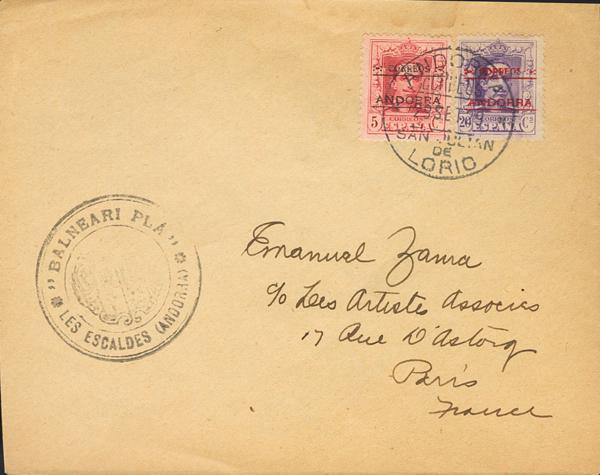 CORREOS
ANDORRA
5
CORREOS
ANDORRA
20 Cs
ANDORRA
SAN JULIAN
DE
LORIO
" BALNEARI PLÁ "
LES ESCALDES (ANDORRA)
Emanuel Zama
c/o Les Artistes Associes
17 Rue D'Astorg
Paris
France